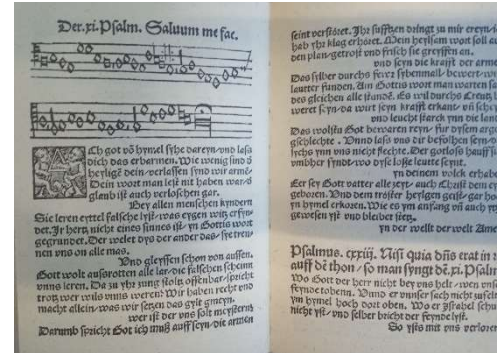 Der .xi. Psalm. Saluum me fac.
Ach got võ hymel syhe dareyn vnd lass
dich das erbarmen. Wie wenig sind d̃
heylige dein verlassen synd wir armẽ
Dein wort man lest nit haben war. d̃
glaub ist auch verloschen gar.
Bey allen menschen kyndern
Sie leren eyttel falsche lyst was eygen witz erfyn-
det. Jr hertz nicht eines sinnes ist yn Gottis wort
gegrundet. Der welet dys der ander das sye tren-
nen vns on alle mas.
Vnd gleyssen schon von aussen.
Gott wolt ausrotten alle lar die falschen scheinn
vnns leren. Da zu yhr zung stoltz offenbar spricht
trotz wer wils vnns weren: Wir haben recht vnd
macht allein was wir setzen das gylt gmeyn.
wer ist der vns solt meystern
Darumb spricht Got ich muß auff seyn die armen
seint verstöret. Jhr suffzen dringt zu mir ereyn ich
hab yhr klag erhöret. Mein heylsam wort soll auff
den plan getrost vnd frisch sie greyffen an.
vnd seyn die krafft der arme
Das silber durchs fewr sybenmall bewert wirt
lautter funden. Am Gottis wort man warten sall
des gleichen alle stundẽ. Es wil durchs Creutz
weret seyn da wirt seyn krafft erkant vñ
vnd leucht starck ynn die land
Das wolstu Got bewaren reyn fur dysem argen
geschlechte. Vnnd lass vns dir befolhen seyn
sychs ynn vns nicht flechte. Der gotloss hauff
vmbher fyndt wo dyse losse leutte seynt.
yn deinem volck erhabe
Eer sey Gott vatter alle zeyt auch Christ dem eyn-
geboren. Vnd dem tröster heylgen geist gar hoch
yn hymel erkoren. Wie es ym anfang vñ auch
gewesen yst vnd bleibet stetz.
yn der wellt der welt Ame
Psalmus. cxxiij. Nisi quia dñs erat in n
auff dẽ thon so man syngt dẽ .xi. Psalm
Wo Gott der herr nicht bey vns helt wen vnser
feynde tobenn. Vnnd er vnnser sach nicht
ym hymel hoch dort oben. Wo er Jsrahel schutz
nicht yst vnd selber bricht der feynde lyst.
So ysts mit vns verloren